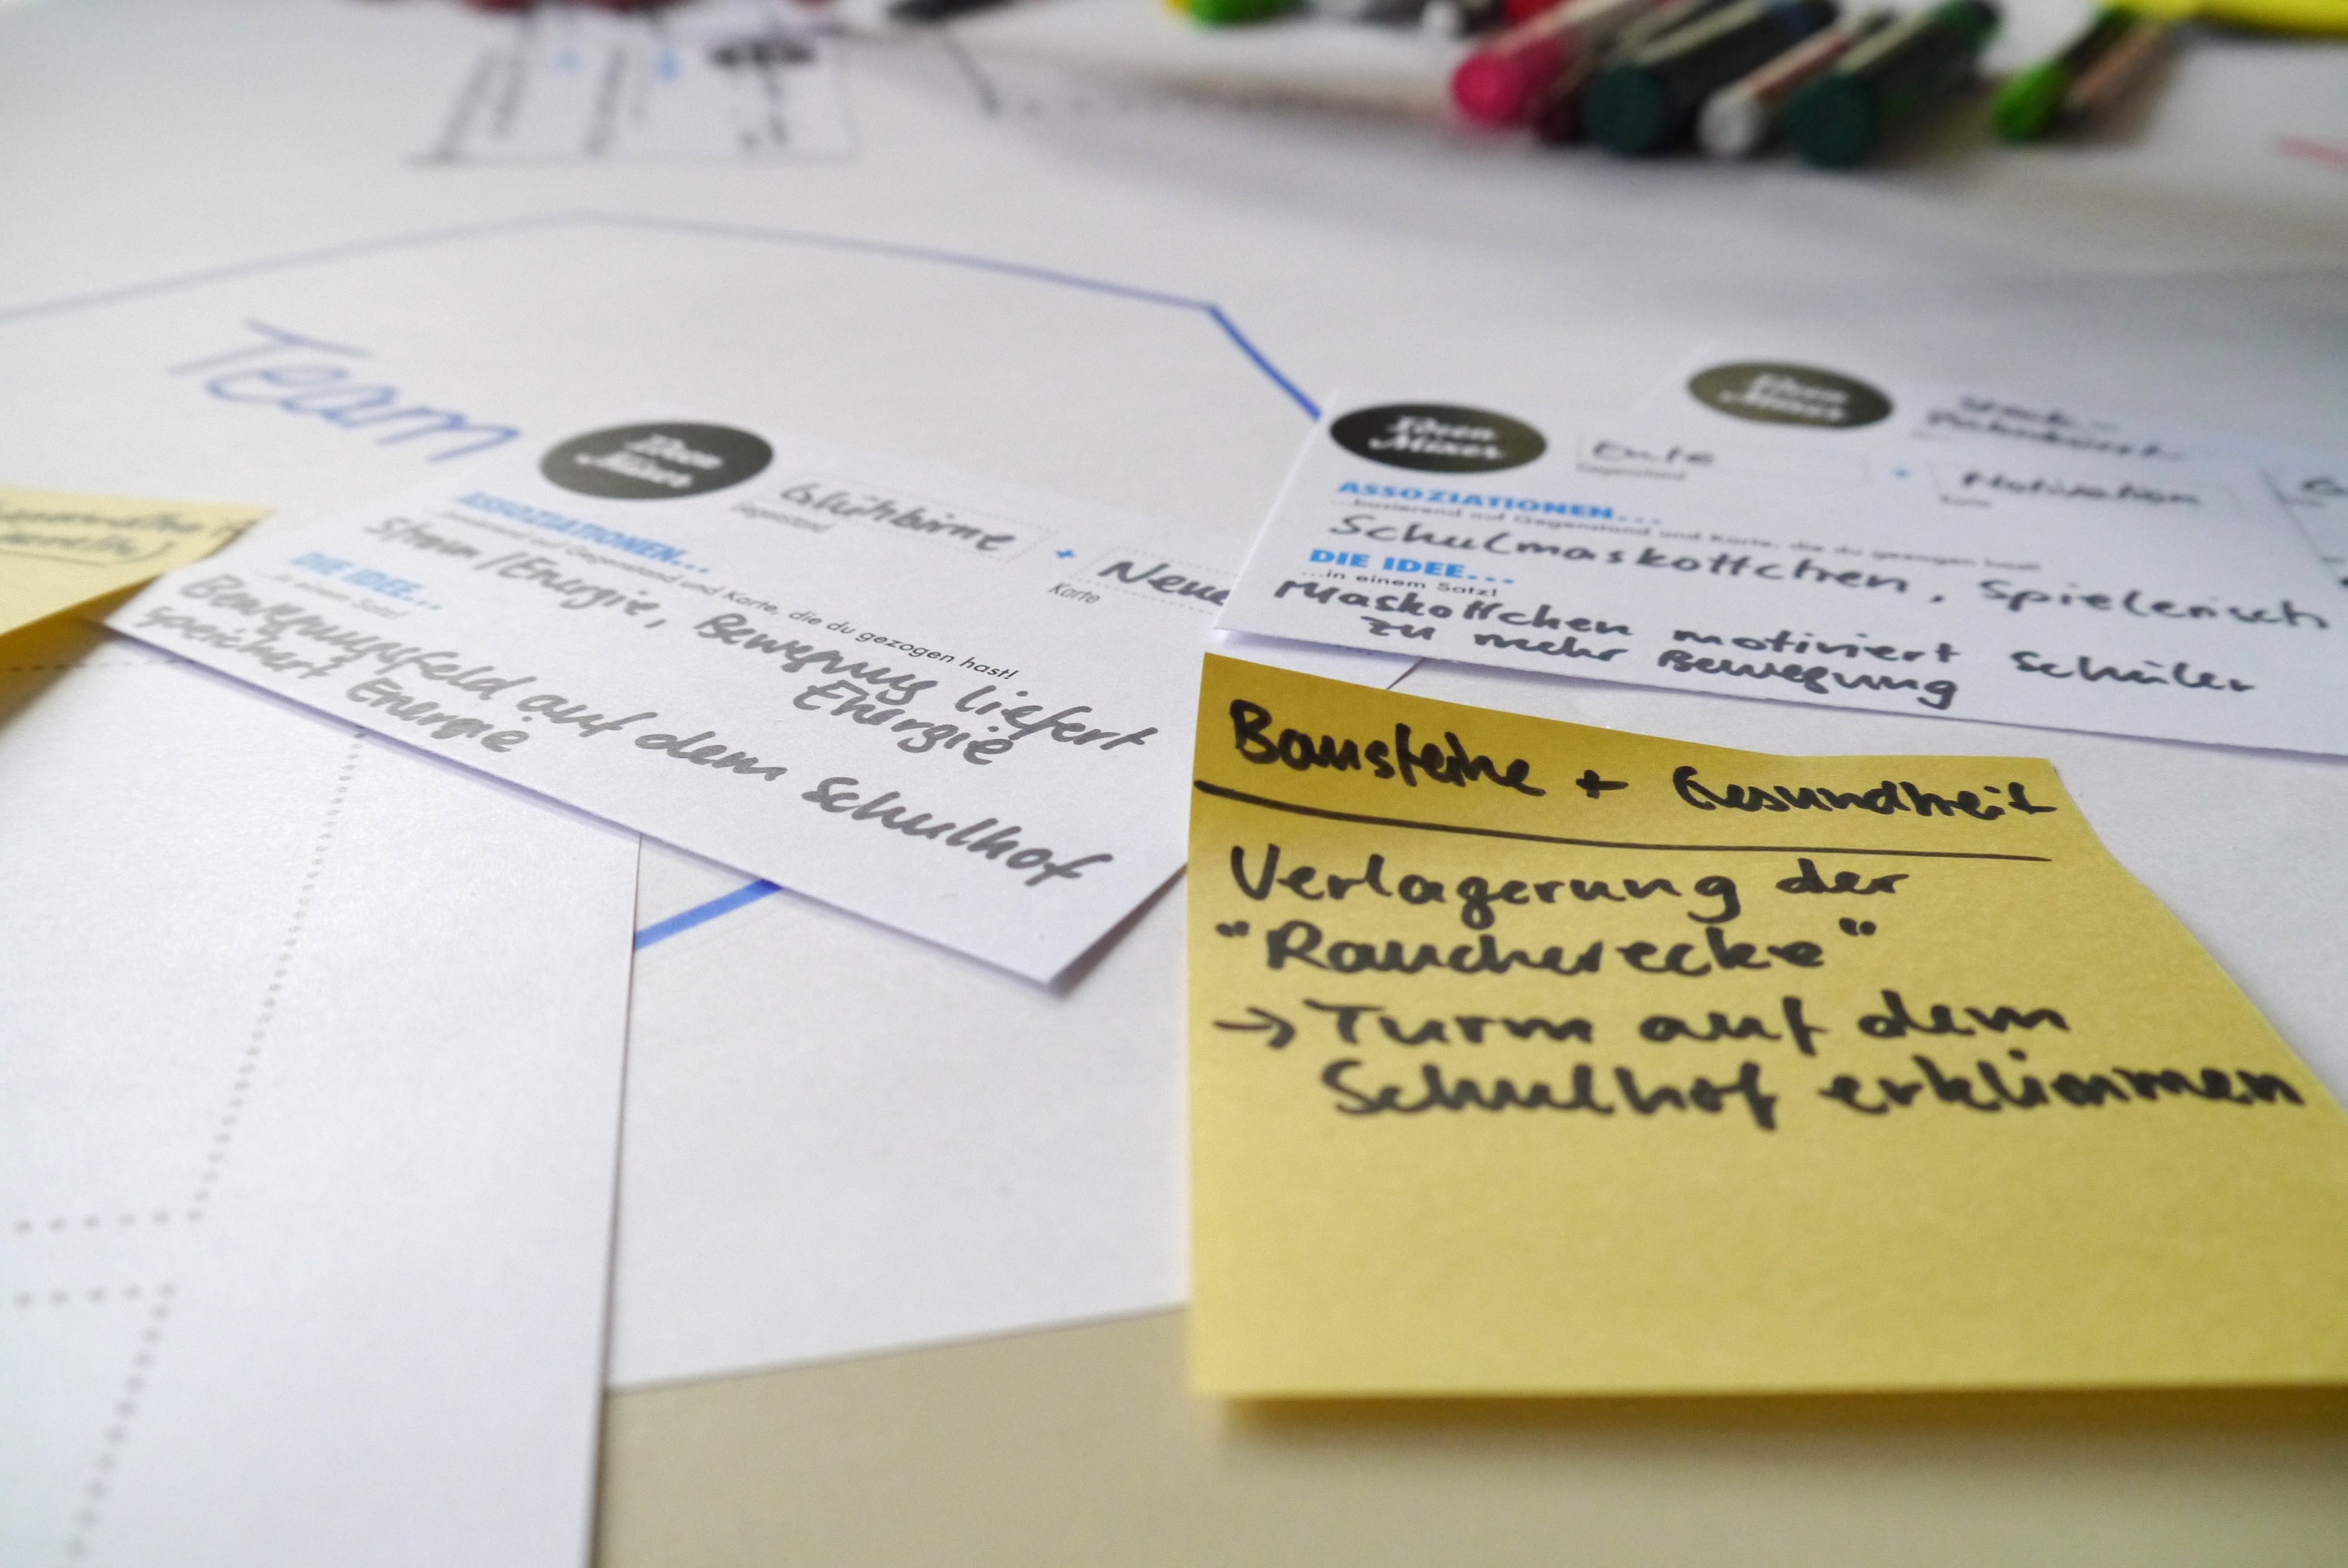 Team
Ideen
Mixer
Glühbirne
Gegenstand
+
Neue
Karte
ASSOZIATIONEN...
...basierend auf Gegenstand und Karte, die du gezogen hast!
Strom/Energie, Bewegung liefert
Energie
DIE IDEE...
...in einem Satz!
Bewegungsfeld auf dem Schulhof
speichert Energie
Ideen
Mixer
Ideen
Mixer
Ente
Gegenstand
+
Motivation
Karte
ASSOZIATIONEN...
...basierend auf Gegenstand und Karte, die du gezogen hast!
Schulmaskottchen, spielerisch
DIE IDEE...
...in einem Satz!
Maskottchen motiviert Schüler
zu mehr Bewegung
Bausteine + Gesundheit
Verlagerung der
"Raucherecke"
→ Turm auf dem
Schulhof erklimmen